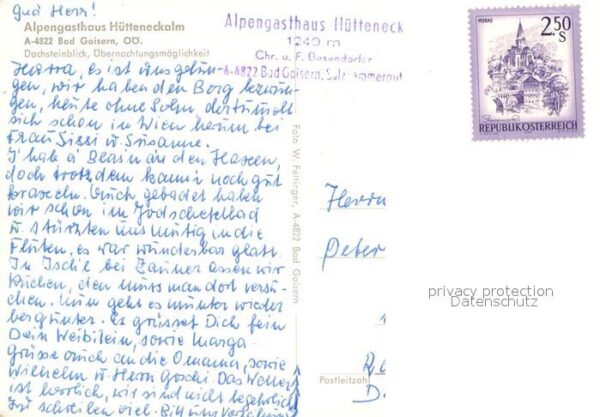 Gud Herr!
Alpengasthaus Hütteneckalm
A-4822 Bad Goisern, OÖ.
Dachsteinblick, Übernachtungsmöglichkeit
Alpengasthaus Hütteneck
1240 m
Chr. u. F.
A-4822 Bad Goisern, Salzkammergut
MURAU
2.50
S
REPUBLIK ÖSTERREICH
Hurra, es ist uns gelun-
gen, wir haben den Berg bezwun-
gen, heute ohne Sohn, der tummelt
sich schon in Wien herum bei
Frau Sissi u. Susanne.
I' hab a Blas'n an den Haxen,
doch trotzdem kann i noch gut
kraxeln. Auch gebadet haben
wir schon im Jodschwefelbad
u. stürzten uns mutig in die
Fluten, es war wunderbar glatt.
In Ischl bei Zauner essen wir
Kuchen, den muss man dort versu-
chen. Nun geht es munter wieder
bergunter. Es grüsset Dich fein
Dein Weiblein, sowie
Grüsse auch an die Omama, sowie
Wilhelm u. Herrn Das Wetter
ist herrlich, wir sind nicht begehrlich
zu schreiben viel.
Foto W. Fettinger, A-4822 Bad Goisern
Herrn
Peter
Postleitzahl
privacy protection
Datenschutz